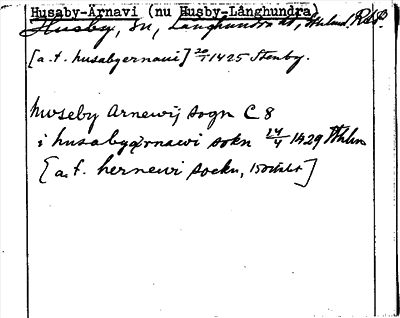 Husaby-Ärnavi (nu Husby-Långhundra)
Husby, sn, Långhundra hd, Sthlms. RAP.
[a.t. husabyernaui] 20/1 1425 Stenby.
huseby Arnewij sogn C 8
i husabyærnawi sokn 24/4 1429 Sthlm
[a.t. hernewi sockn, 1500talet]